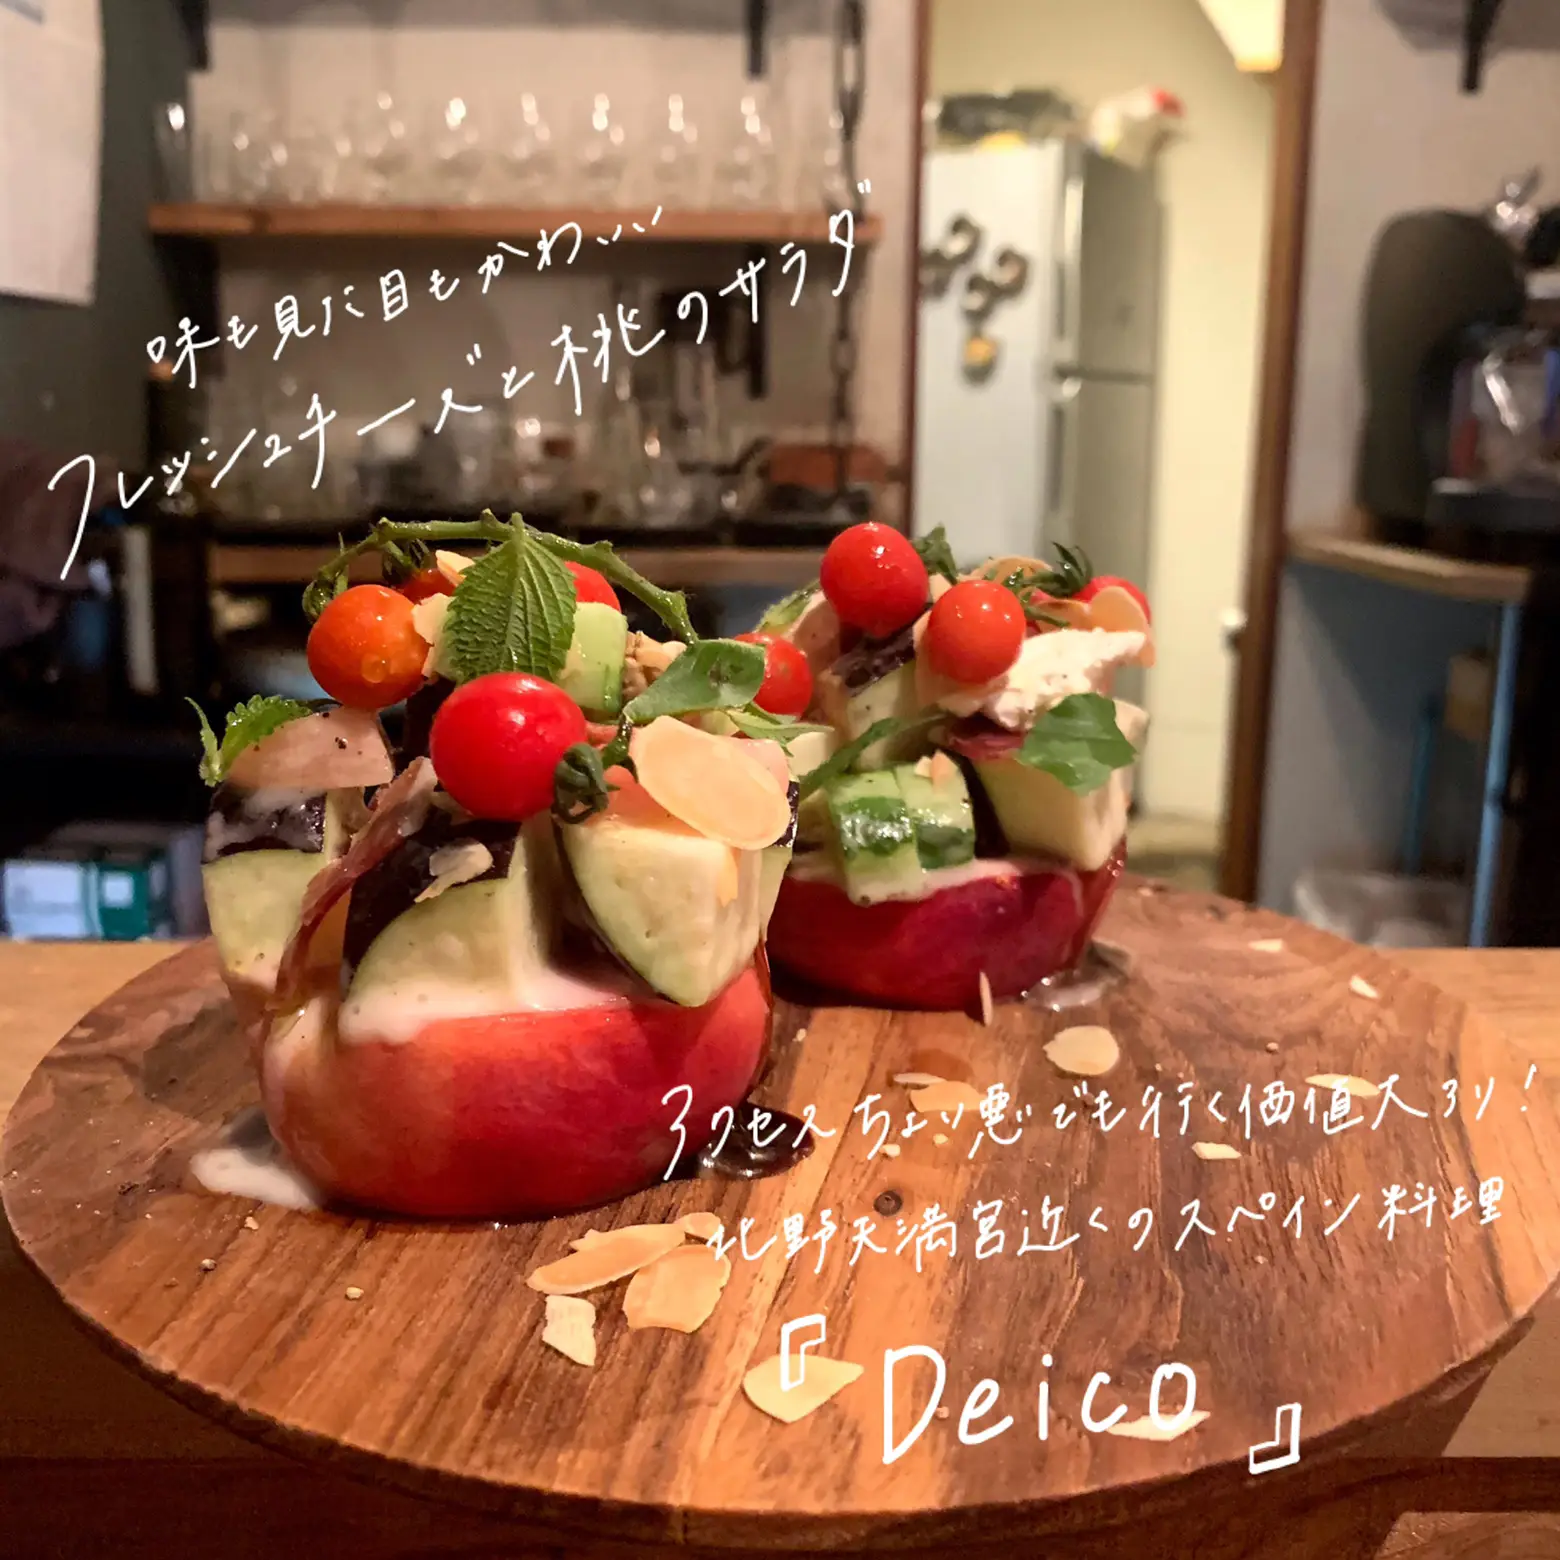 味も見た目もかわいい
フレッシュチーズと桃のサラダ
アクセスちょい悪でも行く価値大アリ!
北野天満宮近くのスペイン料理
『Deico』